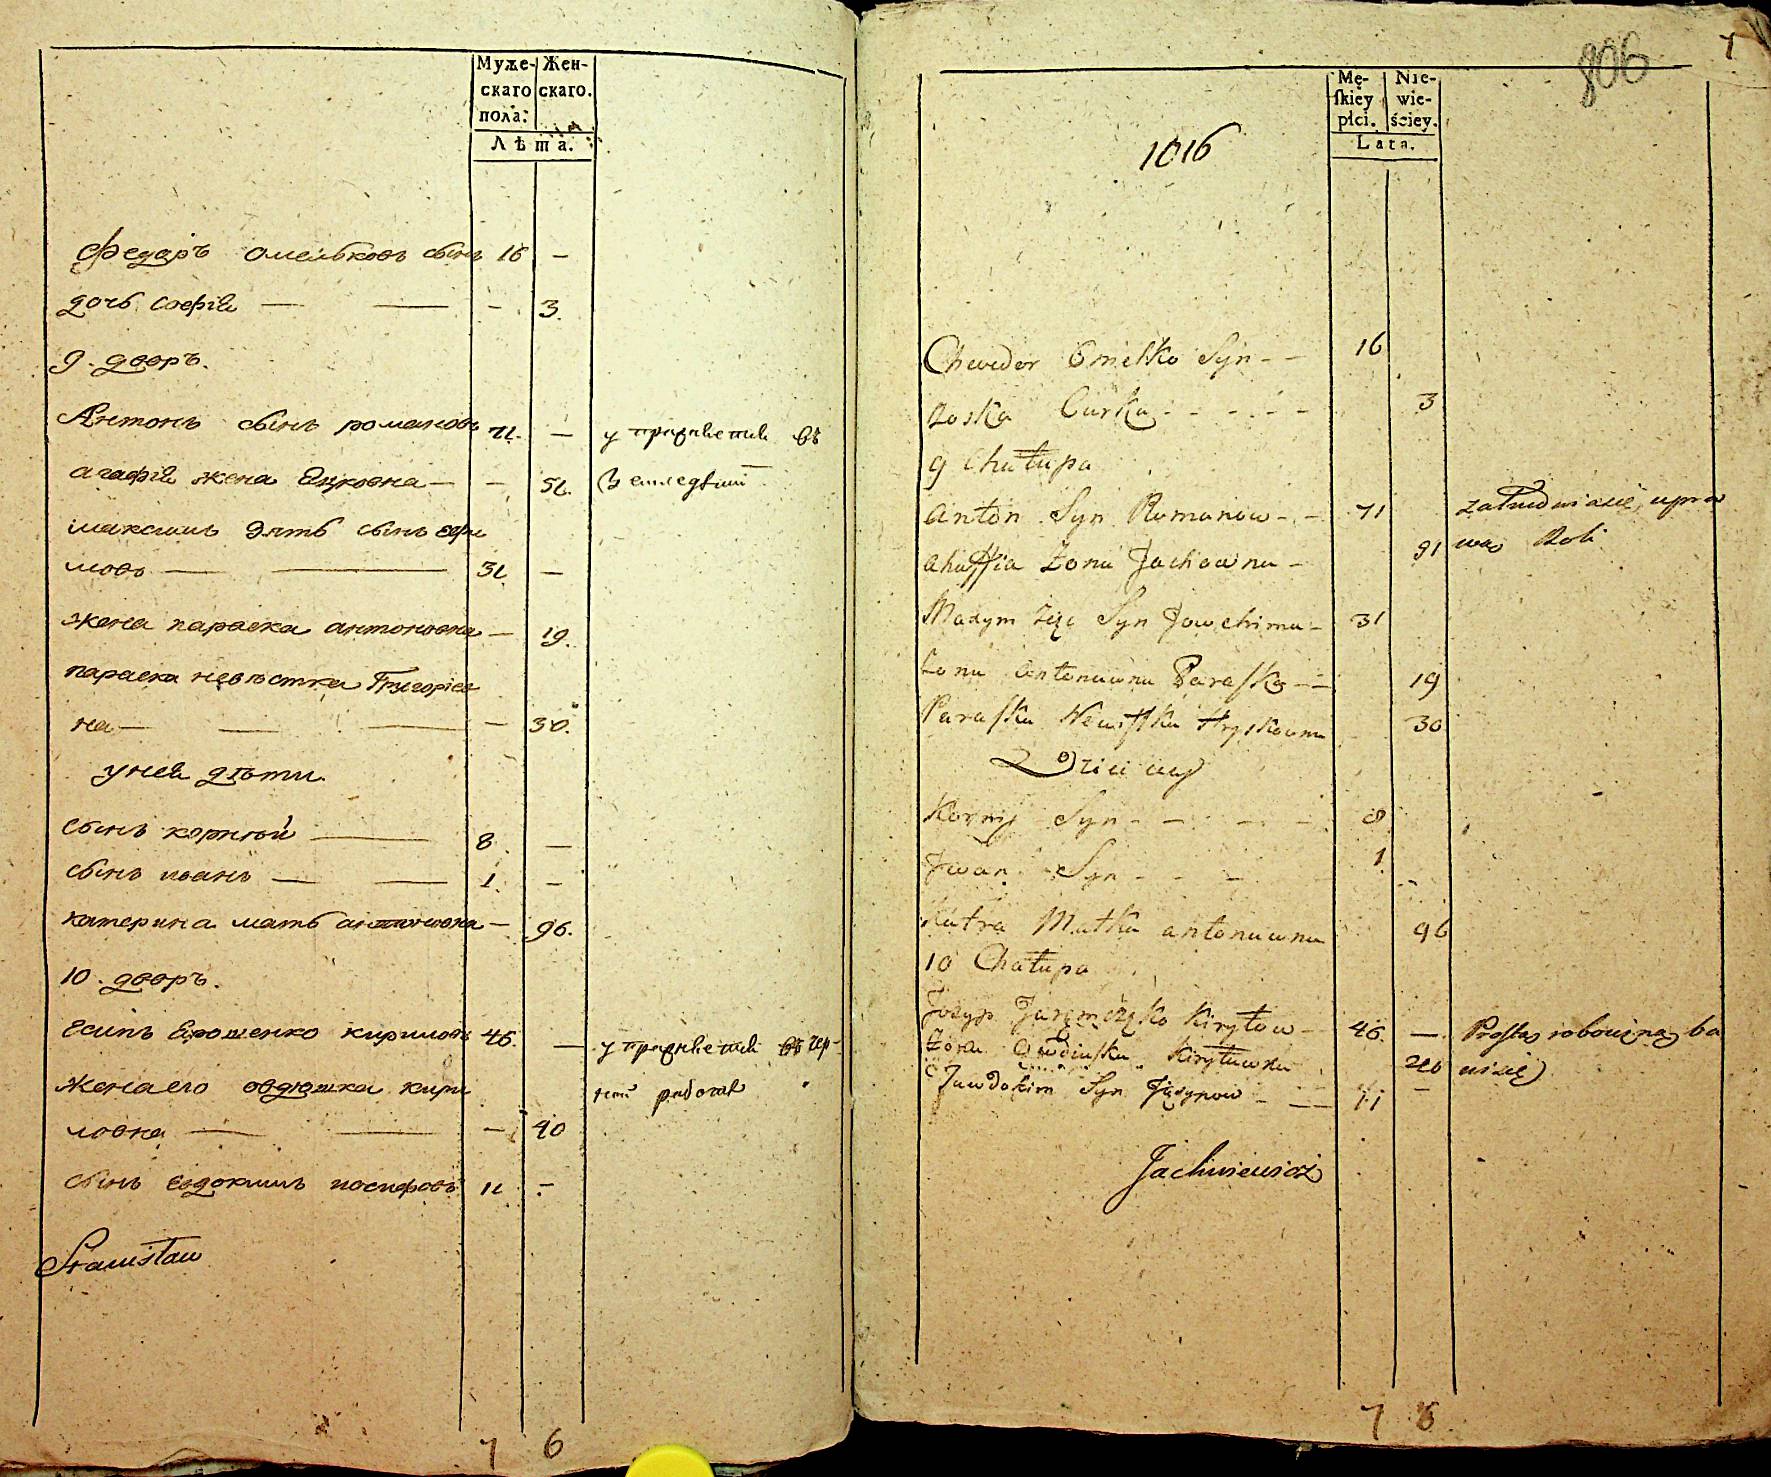 Муже-
скаго
пола.
Жен-
скаго.
Лѣта.
Федоръ Омельковъ сынъ 16 —
дочь Софія — — - 3.
9. дворъ.
Антонъ сынъ романовъ 71. — упражненiе въ
агафія жена Яцковна — - 51. Земледѣлiи
максимъ зять сынъ Ефи
мовъ — — 31 —
жена параска антоновна — 19.
параска невѣстка Григорiев
на — — — - 30.
у ней дѣти.
сынъ корнѣй — 8 —
сынъ иванъ — — 1. -
катерина мать антоновна — 96.
10. дворъ.
Есипъ Ярошенко кириловъ 46. — упражненiе въ чер-
жена его овдюшка кири
ной работѣ
ловна — — - 40
сынъ евдокимъ иосифовъ 11 -
Stanisław
7 6
806
7
1016
Mę-
ſkiey
płci.
Nie-
wie-
ściey.
Lata.
Chwedor Omelko Syn - - 16
Zoska Curka - - - - - 3
9 Chałupa
Anton Syn Romanow - - 71 zatrudnia się upra
Ahaffia Żona Jackowna - 51 wą Roli
Maxym Zięć Syn Jowchima - 31
Żona Antonuwna Paraska - - 19
Paraska Newistka Hryskowna 30
Dzieci iey
Korniy Syn - - - - 8
Jwan Syn - - - 1
Katra Matka antonuwna 96
10 Chałupa
Jozyp Jaremczęko Kiryłow - 46. — Prostą robocizną ba
Żona Owdiuska Kiryłuwna 40 wi się
Jawdokim Syn Jozypow - — 11 -
Jachniewicz
7 6